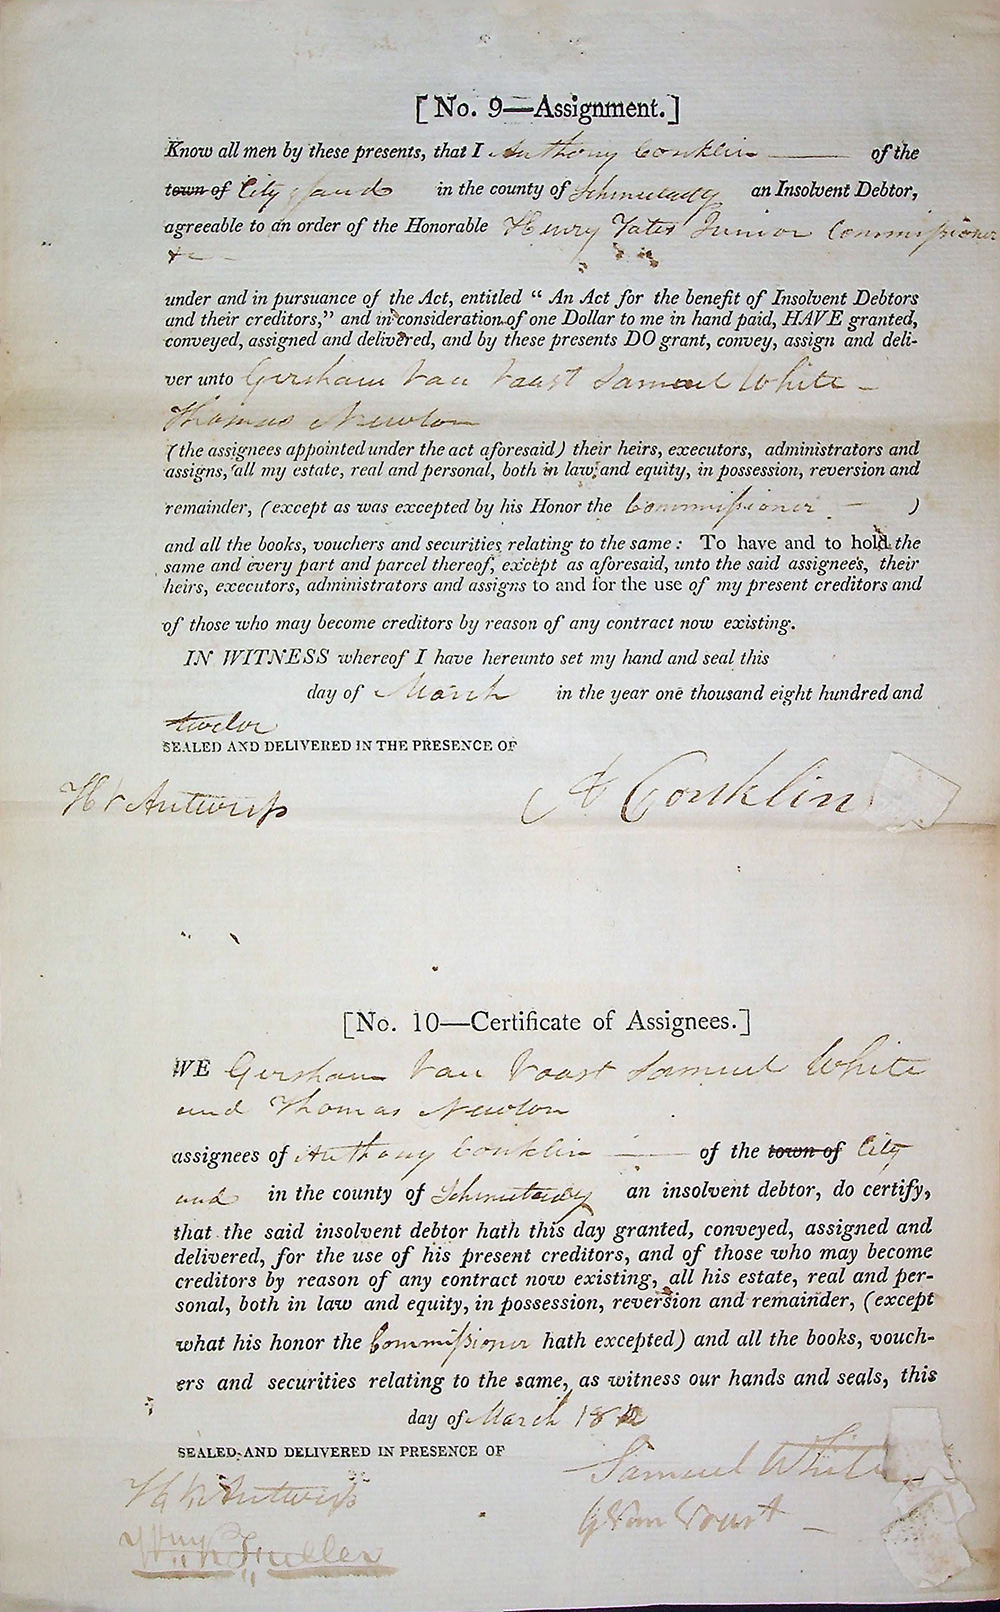 [No. 9—Assignment.]
Know all men by these presents, that I Anthony Conklin of the
town of City and in the county of Schenectady an Insolvent Debtor,
agreeable to an order of the Honorable Henry Yates Junior Commissioner
&c
under and in pursuance of the Act, entitled “ An Act for the benefit of Insolvent Debtors
and their creditors,” and in consideration of one Dollar to me in hand paid, HAVE granted,
conveyed, assigned and delivered, and by these presents DO grant, convey, assign and deli-
ver unto Gersham Van Vaast Samuel White
Thomas Newton
(the assignees appointed under the act aforesaid) their heirs, executors, administrators and
assigns, all my estate, real and personal, both in law and equity, in possession, reversion and
remainder, (except as was excepted by his Honor the Commissioner )
and all the books, vouchers and securities relating to the same: To have and to hold the
same and every part and parcel thereof, except as aforesaid, unto the said assignees, their
heirs, executors, administrators and assigns to and for the use of my present creditors and
of those who may become creditors by reason of any contract now existing.
IN WITNESS whereof I have hereunto set my hand and seal this
day of March in the year one thousand eight hundred and
twelve
SEALED AND DELIVERED IN THE PRESENCE OF
H V Antwerp
A Conklin
[No. 10—Certificate of Assignees.]
WE Gersham Van Voast Samuel White
and Thomas Newton
assignees of Anthony Conklin of the town of City
and in the county of Schenectady an insolvent debtor, do certify,
that the said insolvent debtor hath this day granted, conveyed, assigned and
delivered, for the use of his present creditors, and of those who may become
creditors by reason of any contract now existing, all his estate, real and per-
sonal, both in law and equity, in possession, reversion and remainder, (except
what his honor the Commissioner hath excepted) and all the books, vouch-
ers and securities relating to the same, as witness our hands and seals, this
day of March 1812
SEALED AND DELIVERED IN PRESENCE OF
Samuel White
Antwerp
G Van Voast
Fuller